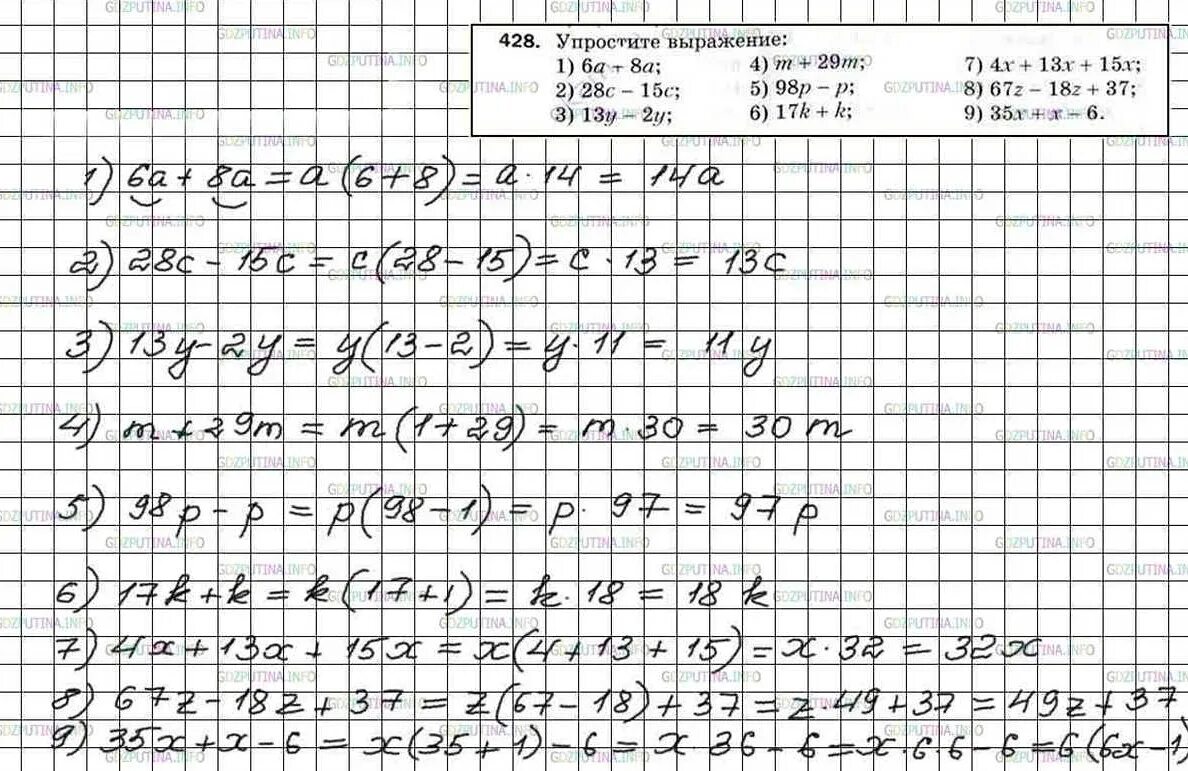 428. Упростите выражение:
1) 6a + 8a; 4) m + 29m; 7) 4x + 13x + 15x;
2) 28c − 15c; 5) 98p − p; 8) 67z − 18z + 37;
3) 13y − 2y; 6) 17k + k; 9) 35x + x − 6.
1) 6a + 8a = a (6+8) = a · 14 = 14a
2) 28c − 15c = c(28−15) = c · 13 = 13c
3) 13y − 2y = y(13−2) = y · 11 = 11y
4) m + 29m = m(1+29) = m · 30 = 30m
5) 98p − p = p(98−1) = p · 97 = 97p
6) 17k + k = k(17+1) = k · 18 = 18k
7) 4x + 13x + 15x = x(4+13+15) = x · 32 = 32x
8) 67z − 18z + 37 = z(67−18) + 37 = z · 49 + 37 = 49z + 37
9) 35x + x − 6 = x(35+1) − 6 = x · 36 − 6 = x · 6 · 6 − 6 = 6(6x−1)
GDZPUTINA.INFO